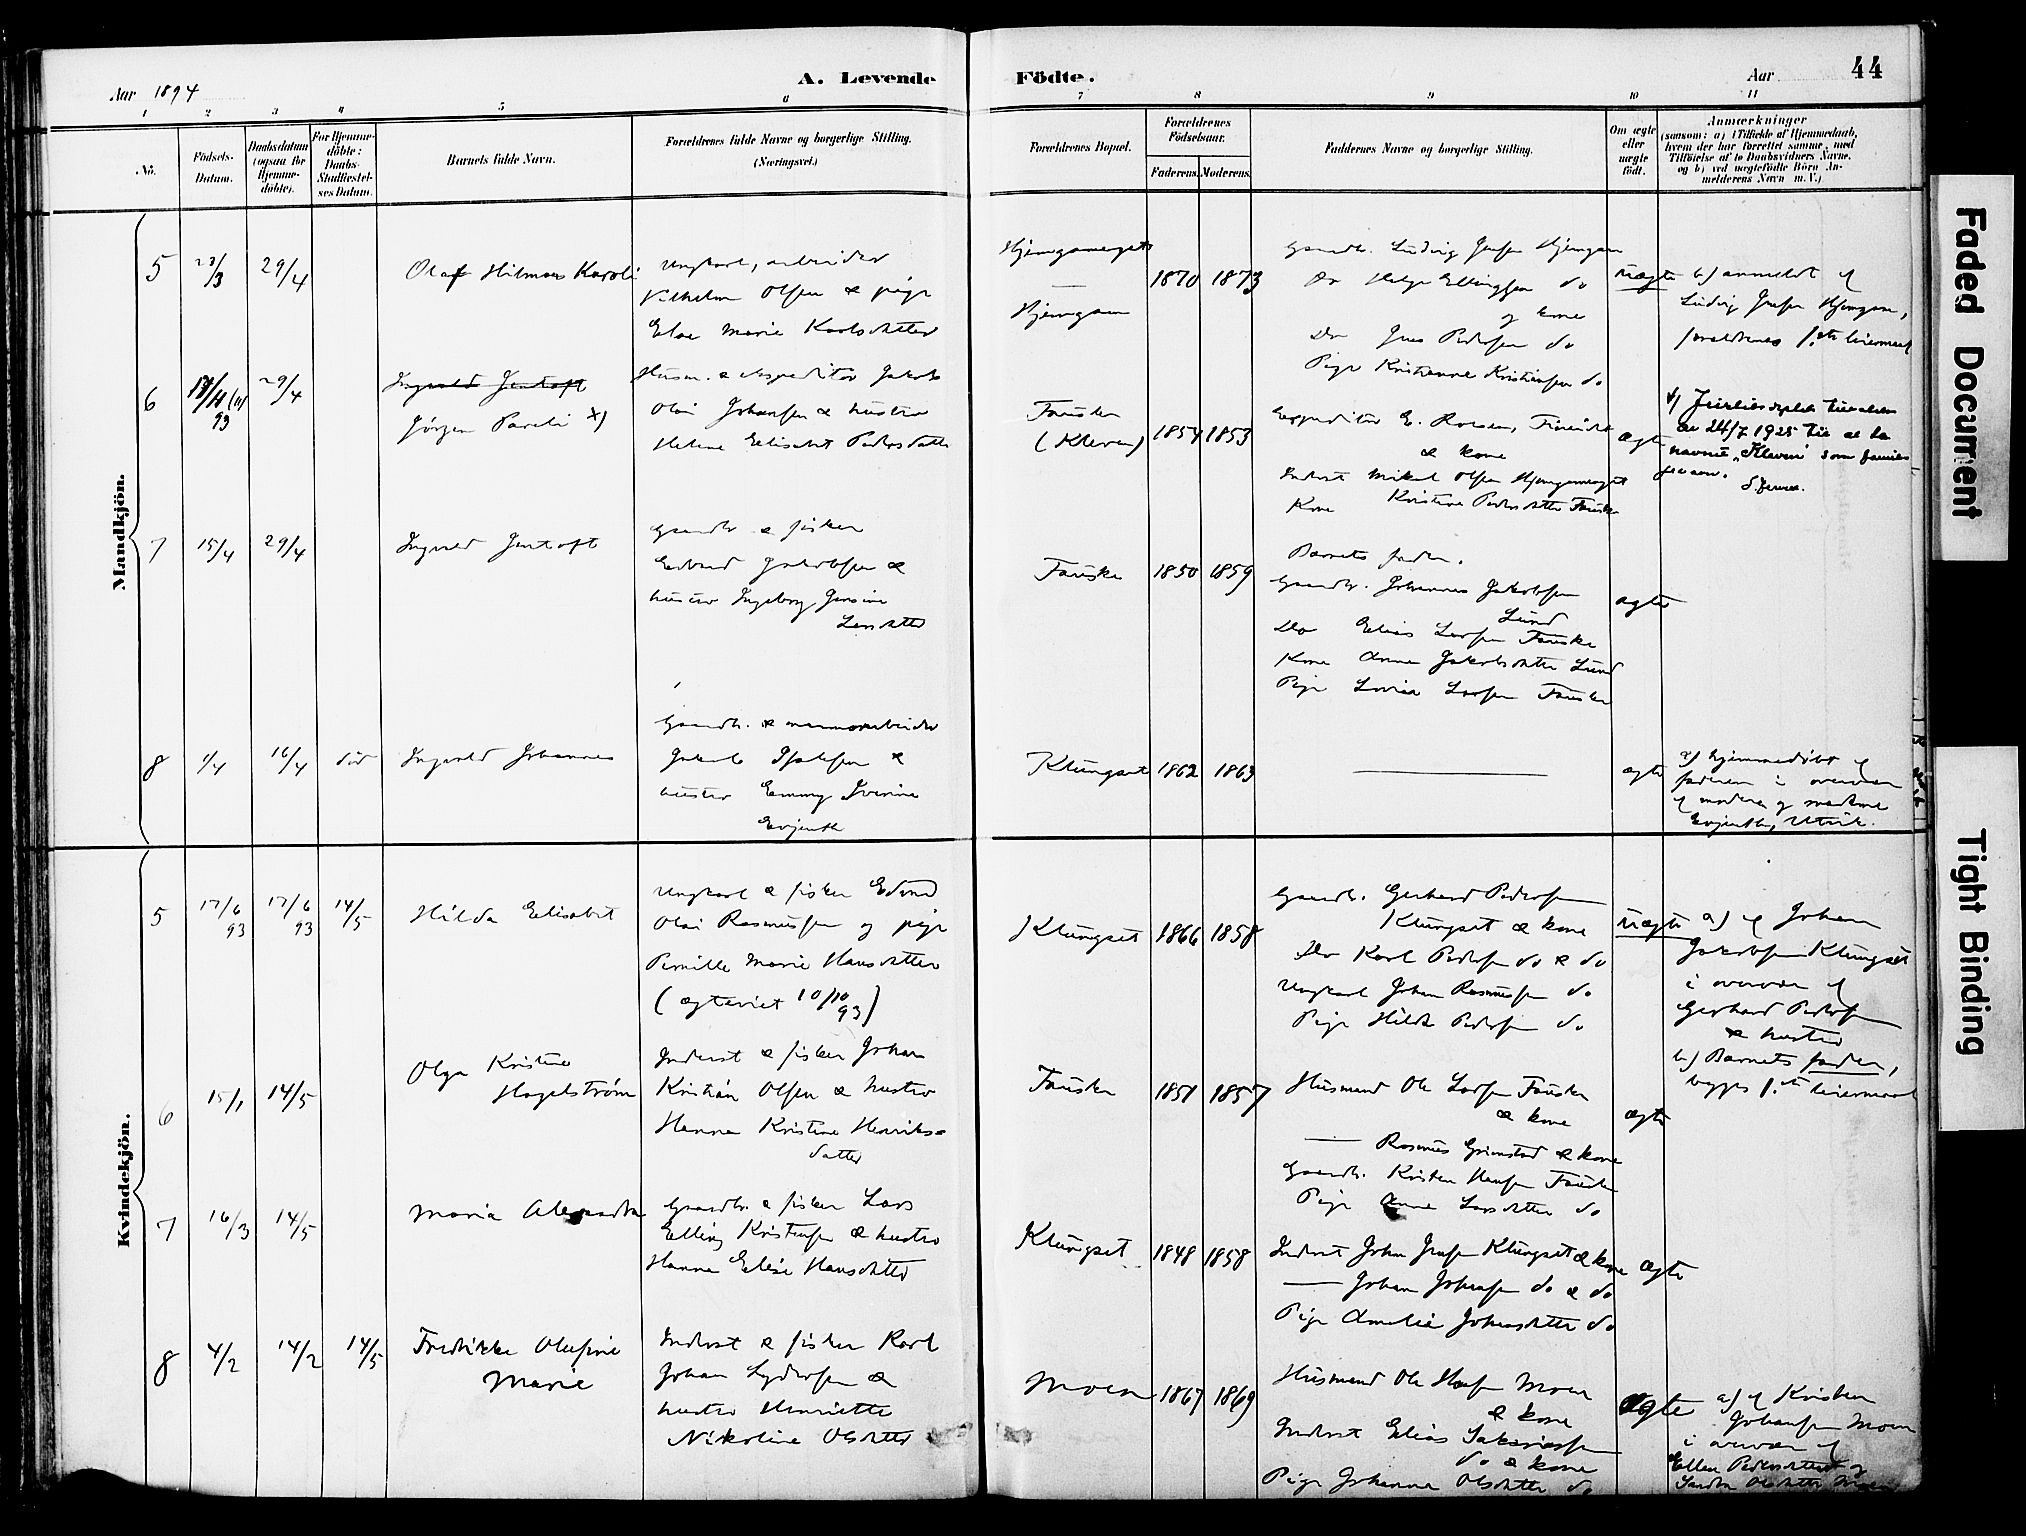 Aar 1894
A. Levende
Födte.
Aar
44
1 2 3 4 5 6 7 8 9 10 11
No.
Födsels-
Datum.
Daabsdatum
(ogsaa for
Hjemme-
döbte).
For Hjemme-
döbte:
Daabs-
Stadfæstel-
ses Datum.
Barnets fulde Navn.
Forældrenes fulde Navne og borgerlige Stilling.
(Næringsvei.)
Forældrenes Bopæl.
Forældrenes
Födselsaar.
Faderens.
Moderens.
Faddernes Navne og borgerlige Stilling.
Om ægte
eller
uægte
födt.
Anmærkninger
(saasom: a) i Tilfælde af Hjemmedaab,
hvem der har forrettet samme, med
Tilföielse af to Daabsvidners Navne,
og b) ved uægtefödte Börn An-
melderens Navn m. V.)
Mandkjön.
5 23/3 29/4 Olaf Hilmar Karoli
Ungkarl, arbeider
Vilhelm Olsen & pige
Else Marie Karlsdatter
Hjemgam
1870 1873
Gaardb. Ludvig Hjemgam
Do Helge Ellingsen do
og kone
Do Jens Pedersen do
Pige Kristianne Kristensen do
uægte
b) anmeldt af
Ludvig Hjemgam,
forældrenes 1ste leiermaal
6 93 29/4
Ingvald Jentoft
Jörgen Pareli x)
Husm. & expeditör Jakob
Olai Johansen & hustru
Helene Elisabet Pedersdatter
Fauske
(Kleven)
1854 1853
Expeditör E.
& kone
Inderst Mikal Olsen
Kone Kristine Pedersdatter Fauske
ægte
24/7 1925 til at ta
navnet "Kleven" som
7 15/4 29/4 Ingvald Jentoft
Gaardb & fisker
Edvard Jakobsen &
hustru Ingeborg Jensine
Larsdatter
Fauske 1850 1859
Barnets fader.
Gaardb. Johannes Jakobsen
Lund
Do Elias Larsen Fauske
Kone Anna Jakobsdatter Lund
Pige Lovise Larsen Fauske
ægte
8 1/4 16/4 död Ingvald Johannes
Gaardb. & marmorarbeider
Jakob &
hustru Emmy Iverine
Evjenth
Klungset 1862 1863
ægte
a) hjemmedöbt af
faderen i overvær
af moderen og madame
Evjenth,
Kvindekjön.
5 17/6 93 17/6 93 14/5 Hilda Elisabet
Ungkarl & fisker Edvard
Olai Rasmussen og pige
Pernille Marie Hansdatter
(ægteviet 10/10 93)
Klungset 1866 1858
Gaardb. Gerhard Pedersen
Klungset & kone
Do Karl Pedersen do & do
Ungkarl Johan Rasmussen do
Pige Hilda Pedersen do
uægte
a) af Johan
Jakobsen Klungset
i overvær af
Gerhard Pedersen
& hustru
b) Barnets fader,
begges 1ste leiermaal
6 15/1 14/5 Olga Kristine
Hagelström
Inderst & fisker Johan
Kristian Olsen & hustru
Hanna Kristine Henriks-
datter
Fauske 1851 1857
Husmand Ole Larsen Fauske
& kone
Rasmus Grimstad & kone
Gaardb. Kristen Hansen Fauske
Pige Anne Larsdatter do
ægte
7 16/3 14/5 Maria Alexandra
Gaardb. & fisker Lars
Elling Kristensen & hustru
Hanna Elise Hansdatter
Klungset 1848 1858
Inderst Johan Jensen Klungset & kone
Johan Johansen do & do
Pige Amalie Johansdatter do
ægte
8 4/2 14/2 14/5 Fredrikke Olufine
Marie
Inderst & fisker Karl
Johan Sydersen &
hustru Henriette
Nikoline Olsdatter
Moen 1867 1869
Husmand Ole Moen
& kone
Inderst Elias Sakariassen
do & kone
Pige Johanna Olsdatter do
ægte
a) af Kristen
Johansen Moen
i overvær af
Ellen Pedersdatter og
Olsdatter Moen
Faded Document
Tight Binding